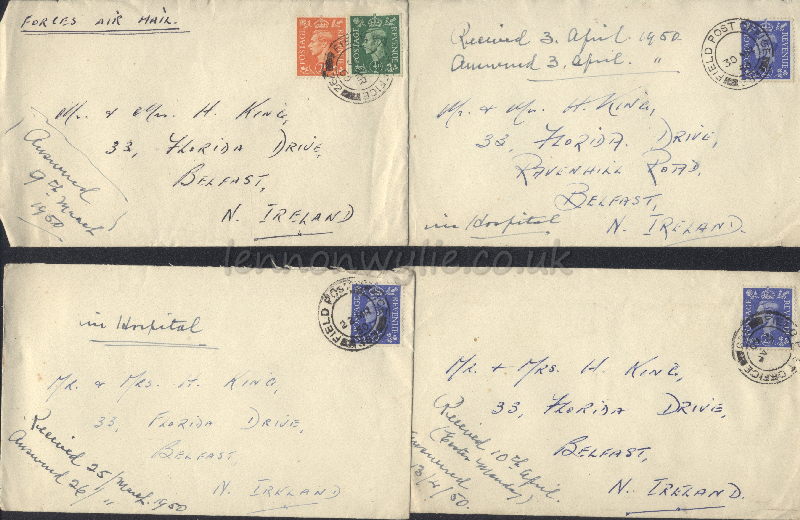 FORCES AIR MAIL.
POSTAGE REVENUE
Mr. & Mrs. H. KING,
33, FLORIDA DRIVE,
BELFAST,
N. IRELAND
Answered
9th March
1950
Received 3. April. 1950.
Answered 3. April. "
FIELD POST OFFICE
30
POSTAGE REVENUE
Mr. & Mrs. H. KING,
33, FLORIDA DRIVE,
RAVENHILL ROAD,
BELFAST,
N. IRELAND.
in Hospital
lennonwylie.co.uk
in Hospital
FIELD POST OFFICE
POSTAGE REVENUE
MR. & MRS. H. KING,
33, FLORIDA DRIVE,
BELFAST,
N. IRELAND
Received 25/March. 1950
Answered 26/ "
POSTAGE REVENUE
FIELD POST OFFICE
MR. + MRS. H. KING,
33, FLORIDA DRIVE,
BELFAST,
N. IRELAND.
Received 10th April.
(Easter Monday)
Answered
13/4/50.